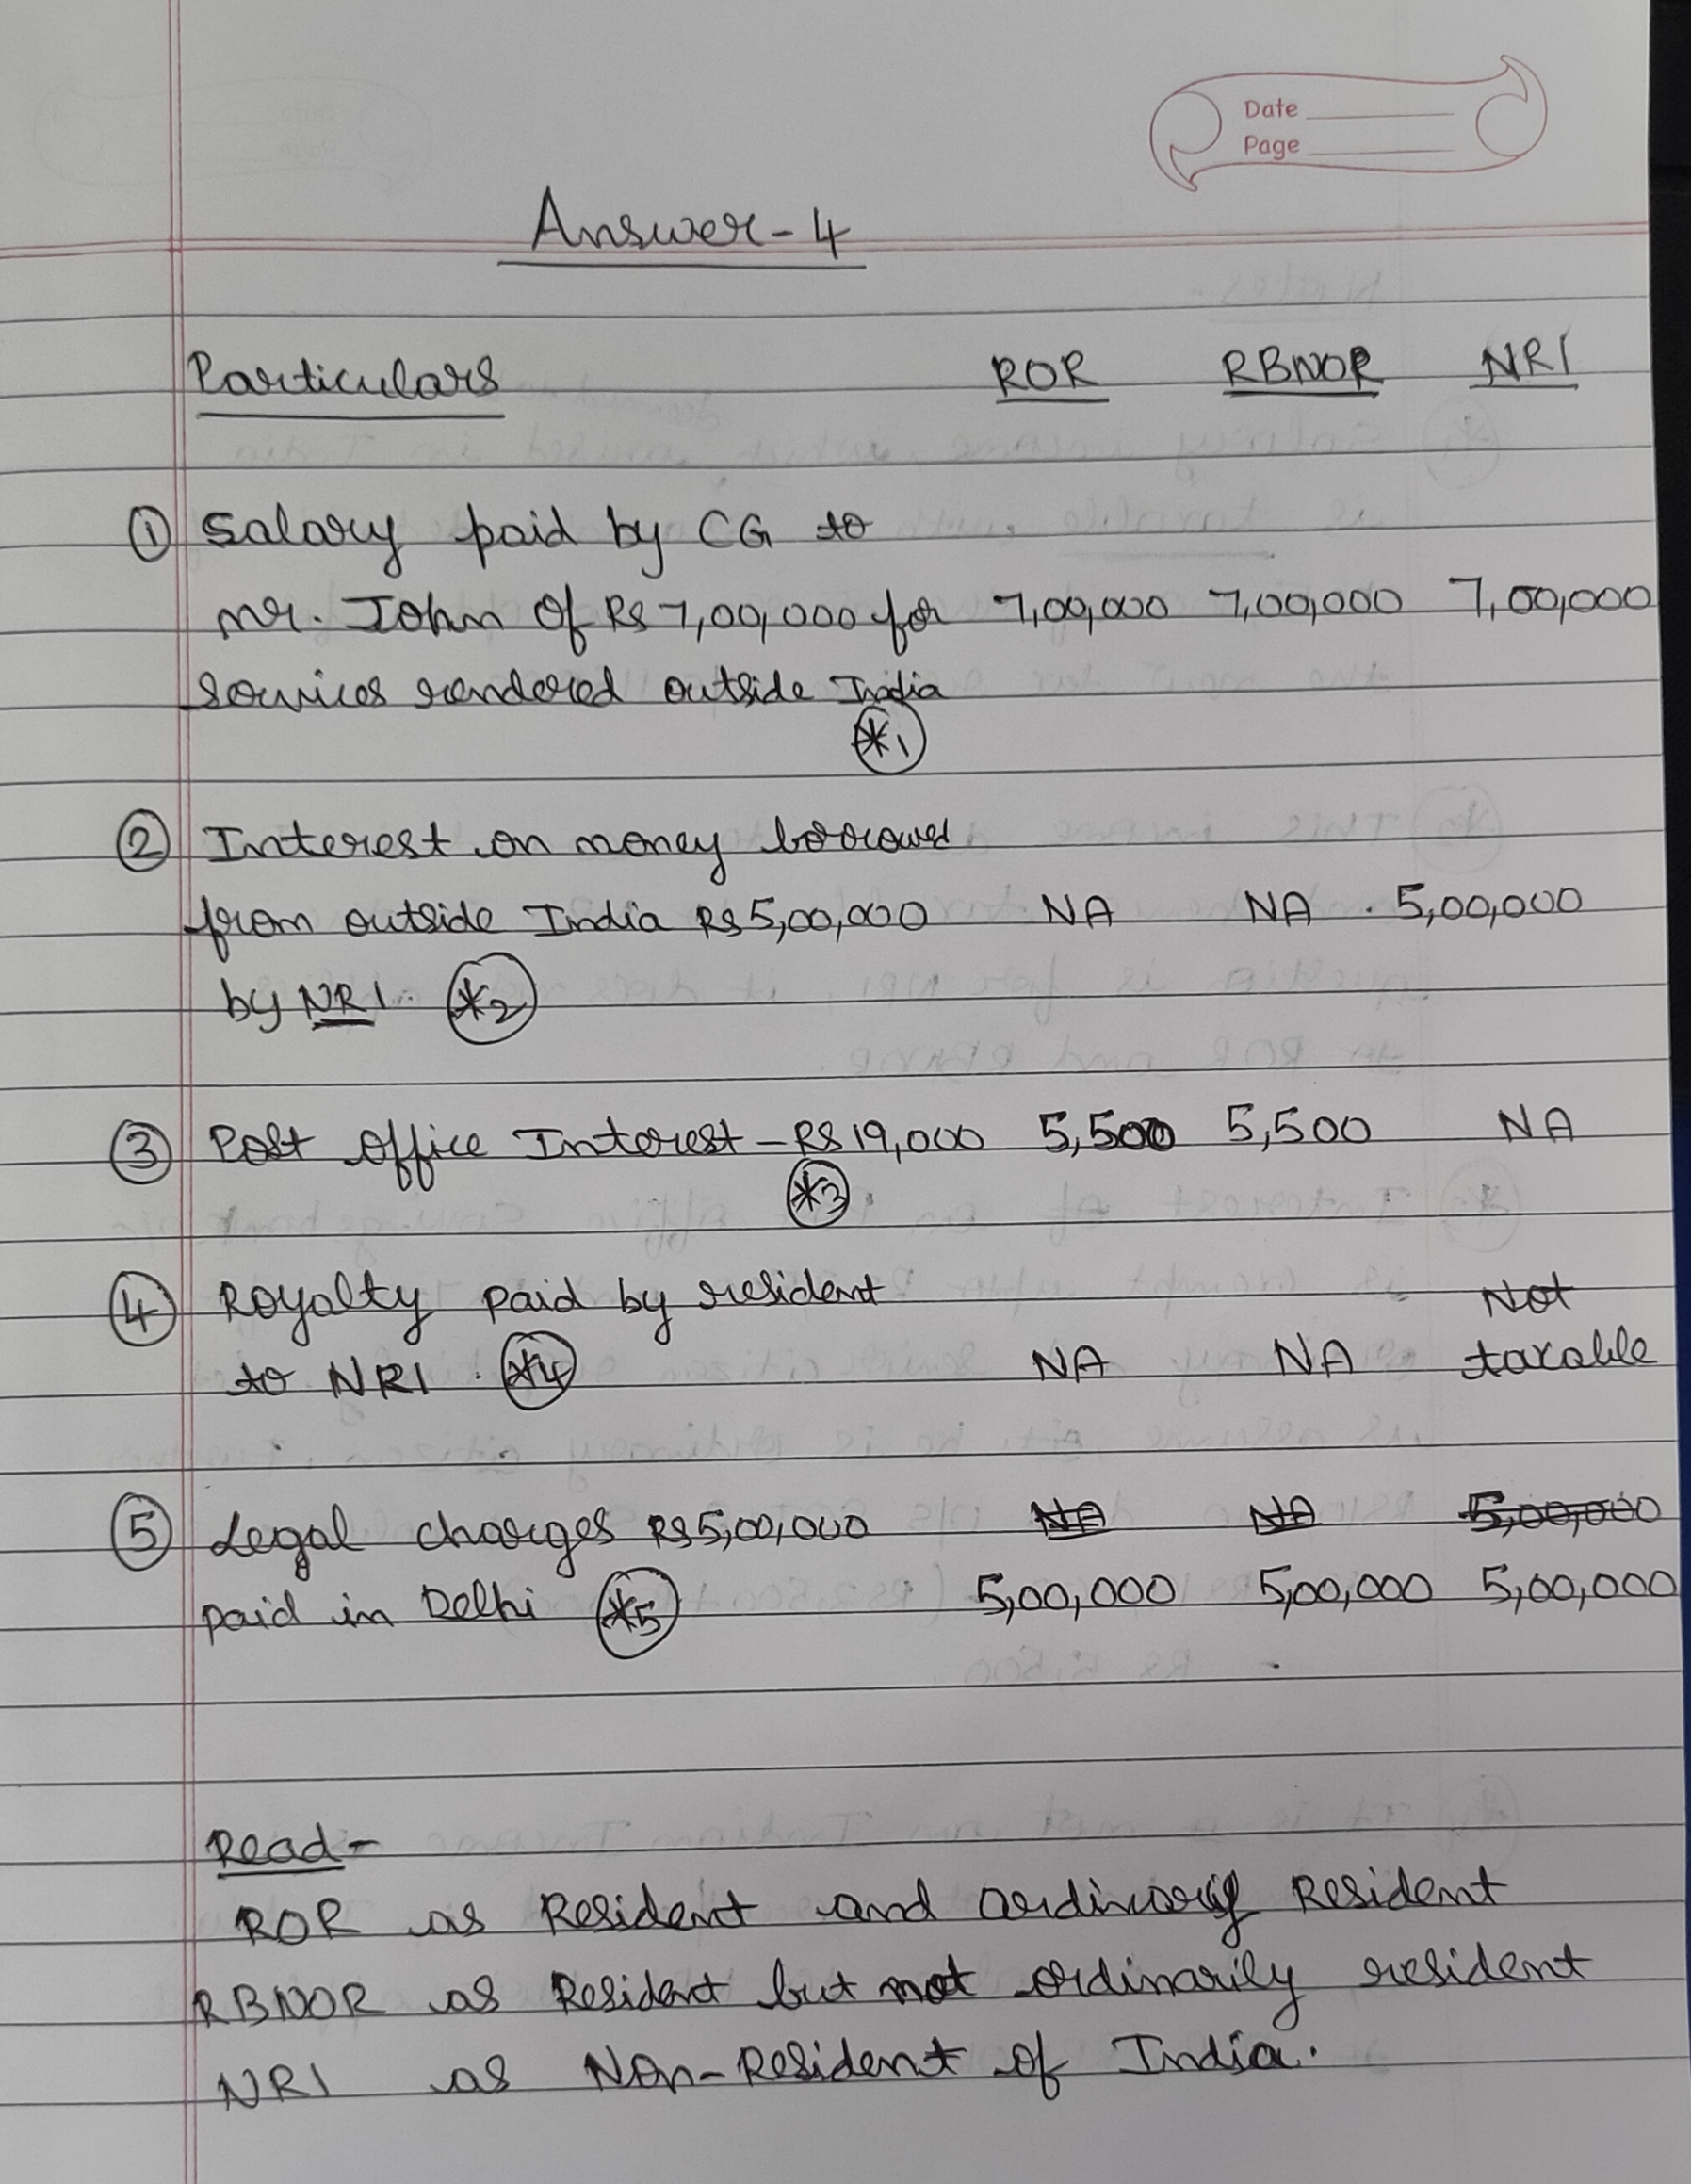 Date
Page
Answer-4
Particulars ROR RBNOR NRI
① Salary paid by CG to
mr. John of Rs 7,00,000 for 7,00,000 7,00,000 7,00,000
services rendered outside India
*1
② Interest on money borrowed
from outside India Rs 5,00,000 NA NA . 5,00,000
by NRI. *2
③ Post office Interest - Rs 19,000 5,500 5,500 NA
*3
④ Royalty paid by resident Not
to NRI . *4 NA NA taxable
⑤ Legal charges Rs 5,00,000 NA NA 5,00,000
paid in Delhi *5 5,00,000 5,00,000 5,00,000
Read-
ROR as Resident and ordinarily Resident
RBNOR as Resident but not ordinarily resident
NRI as Non-Resident of India.